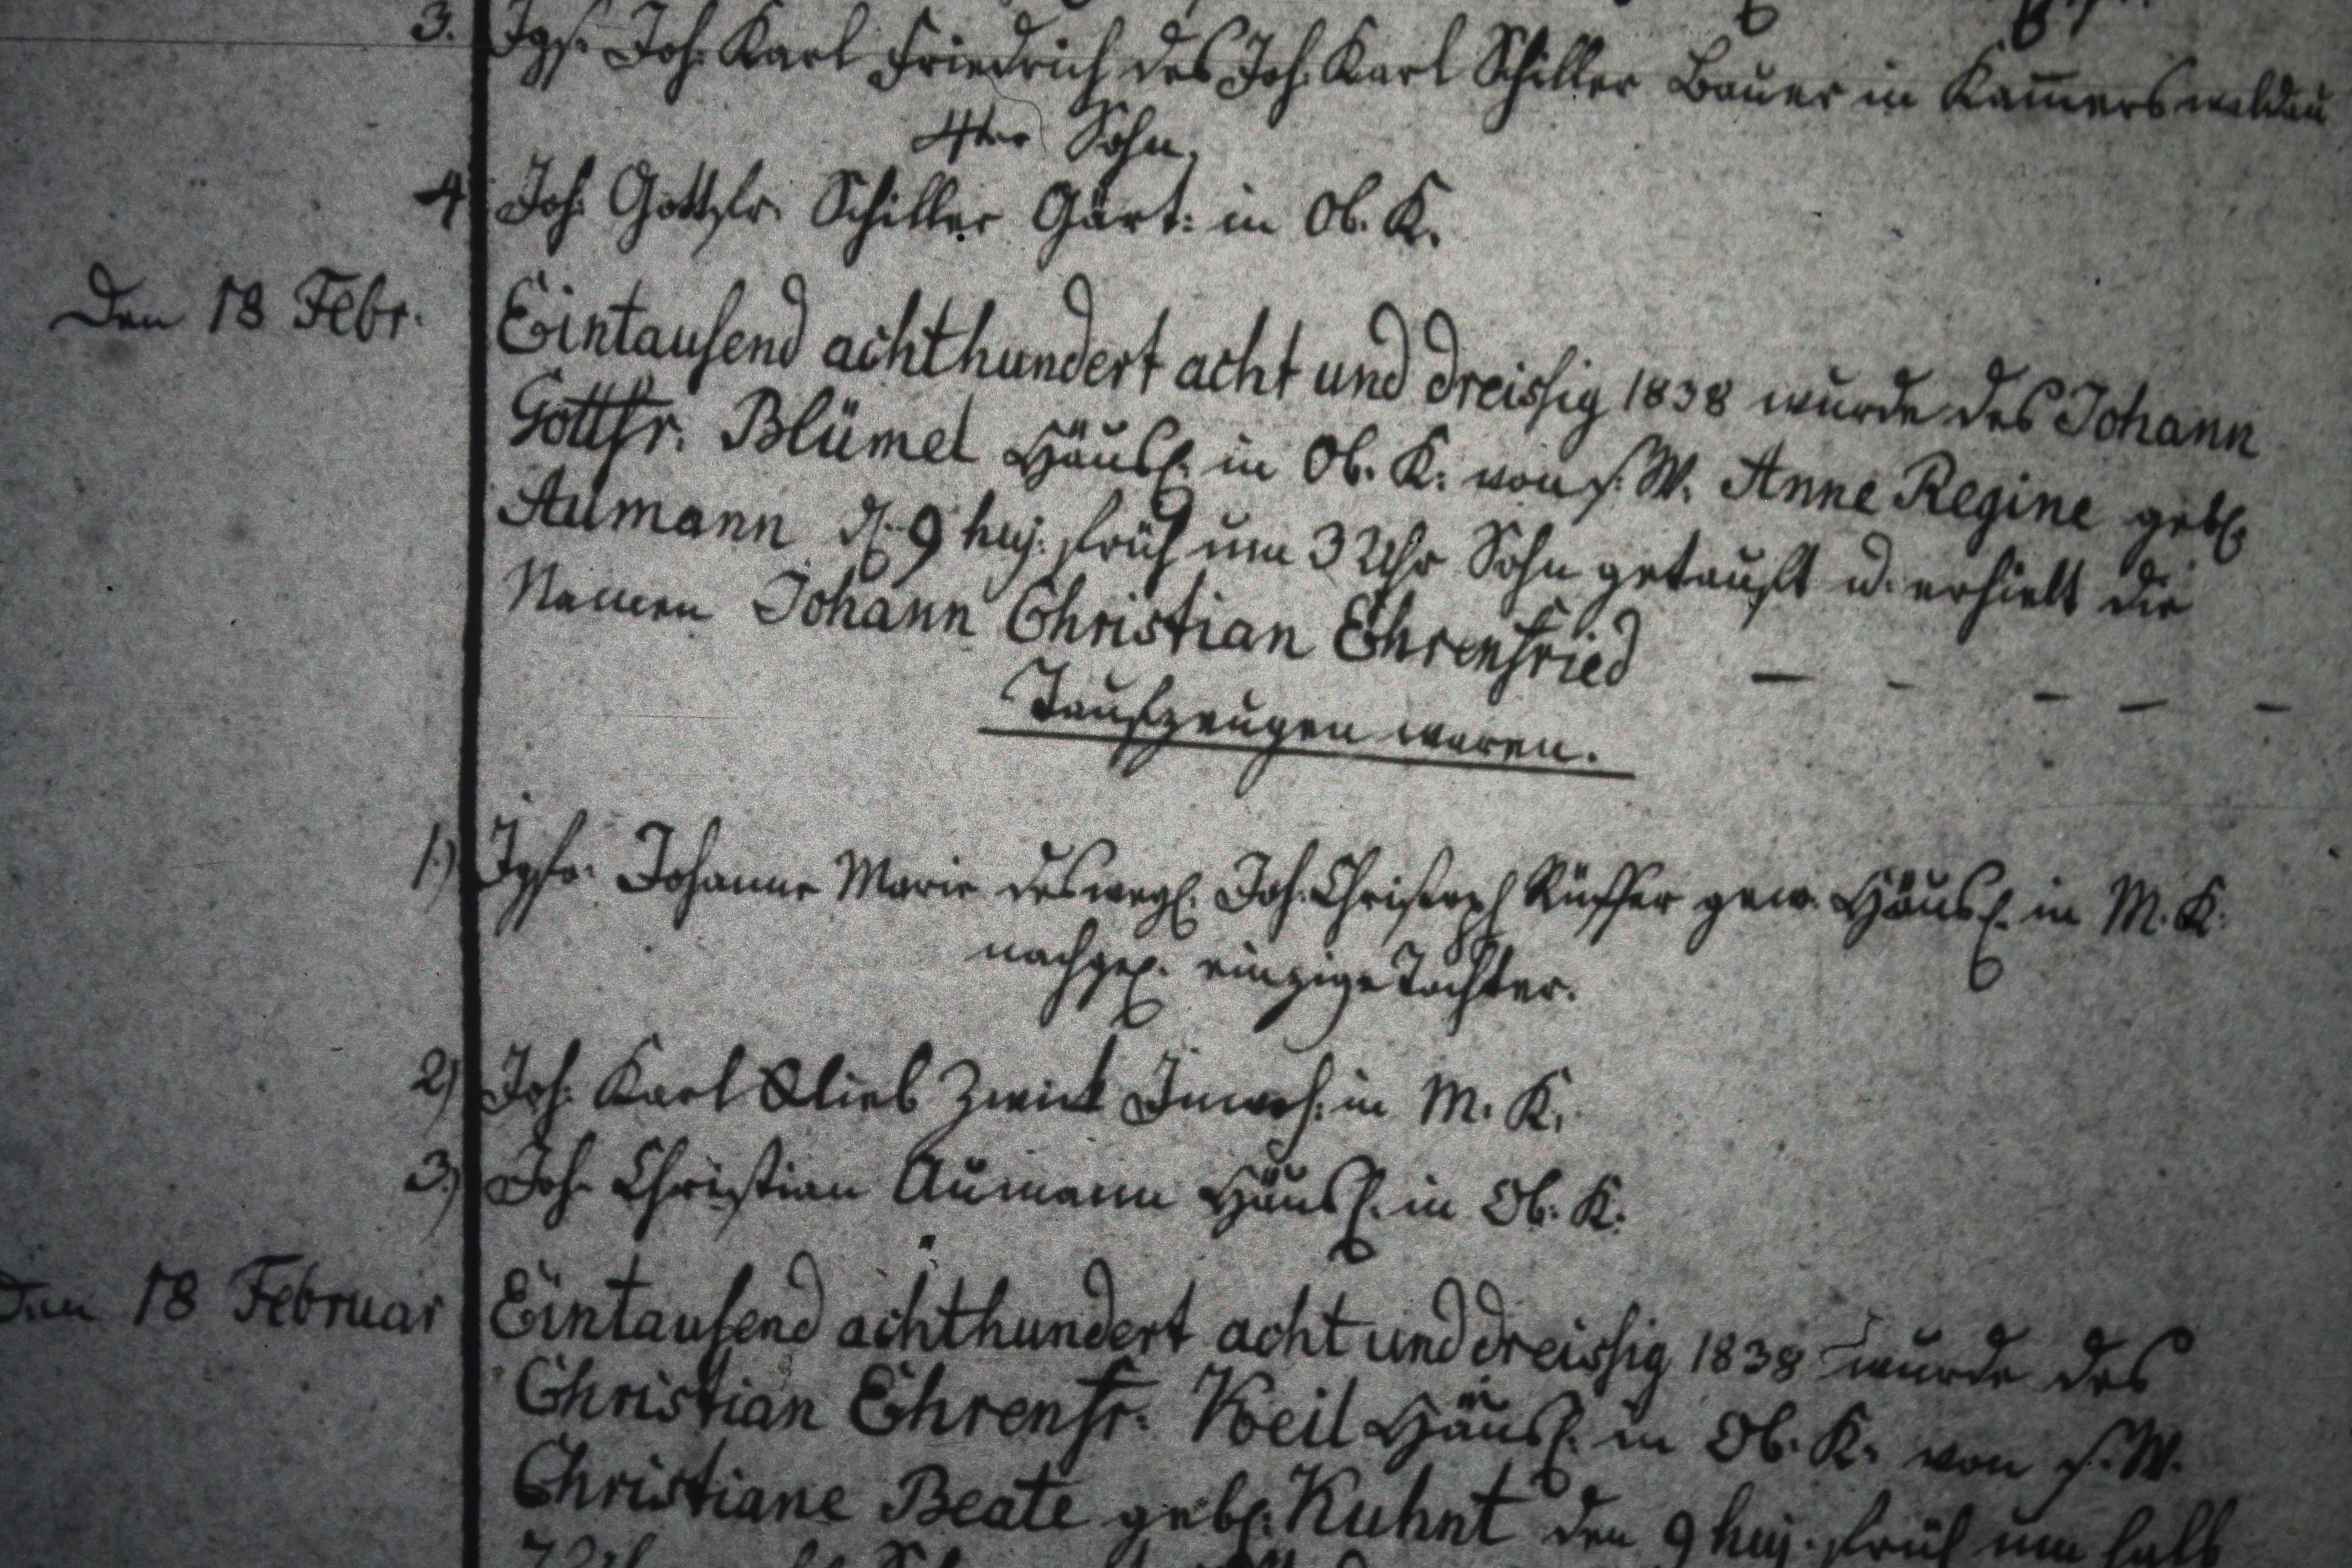 3. Jgs. Joh. Karl Friedrich des Joh. Karl Schiller Bauer in Kam̄erswaldau
4ter Sohn.
4 Joh. Gottfr. Schiller Gärt: in Ob. K.
Den 18 Febr. Eintausend achthundert acht und dreissig 1838 wurde des Johann
Gottfr. Blümel Häusl. in Ob. K. von s. W. Anne Regine geb.
Aumann d. 9 huj. früh um 3 Uhr Sohn getauft u. erhielt die
Namen Johann Christian Ehrenfried — - - — -
Taufzeugen waren.
1.) Jgfr. Johanne Marie des wegl. Joh. Christoph Rüffer gew. Häusl. in M. K.
nachgel. einzige Tochter.
2) Joh. Karl Zwick Inwoh. in M. K.
3.) Joh. Christian Aumann Häusl. in Ob. K.
Den 18 Februar Eintausend achthundert acht und dreissig 1838 wurde des
Christian Ehrenfr. Keil Häusl. in Ob. K. von s. W.
Christiane Beate geb. Kuhnt den 9 huj. früh um halb